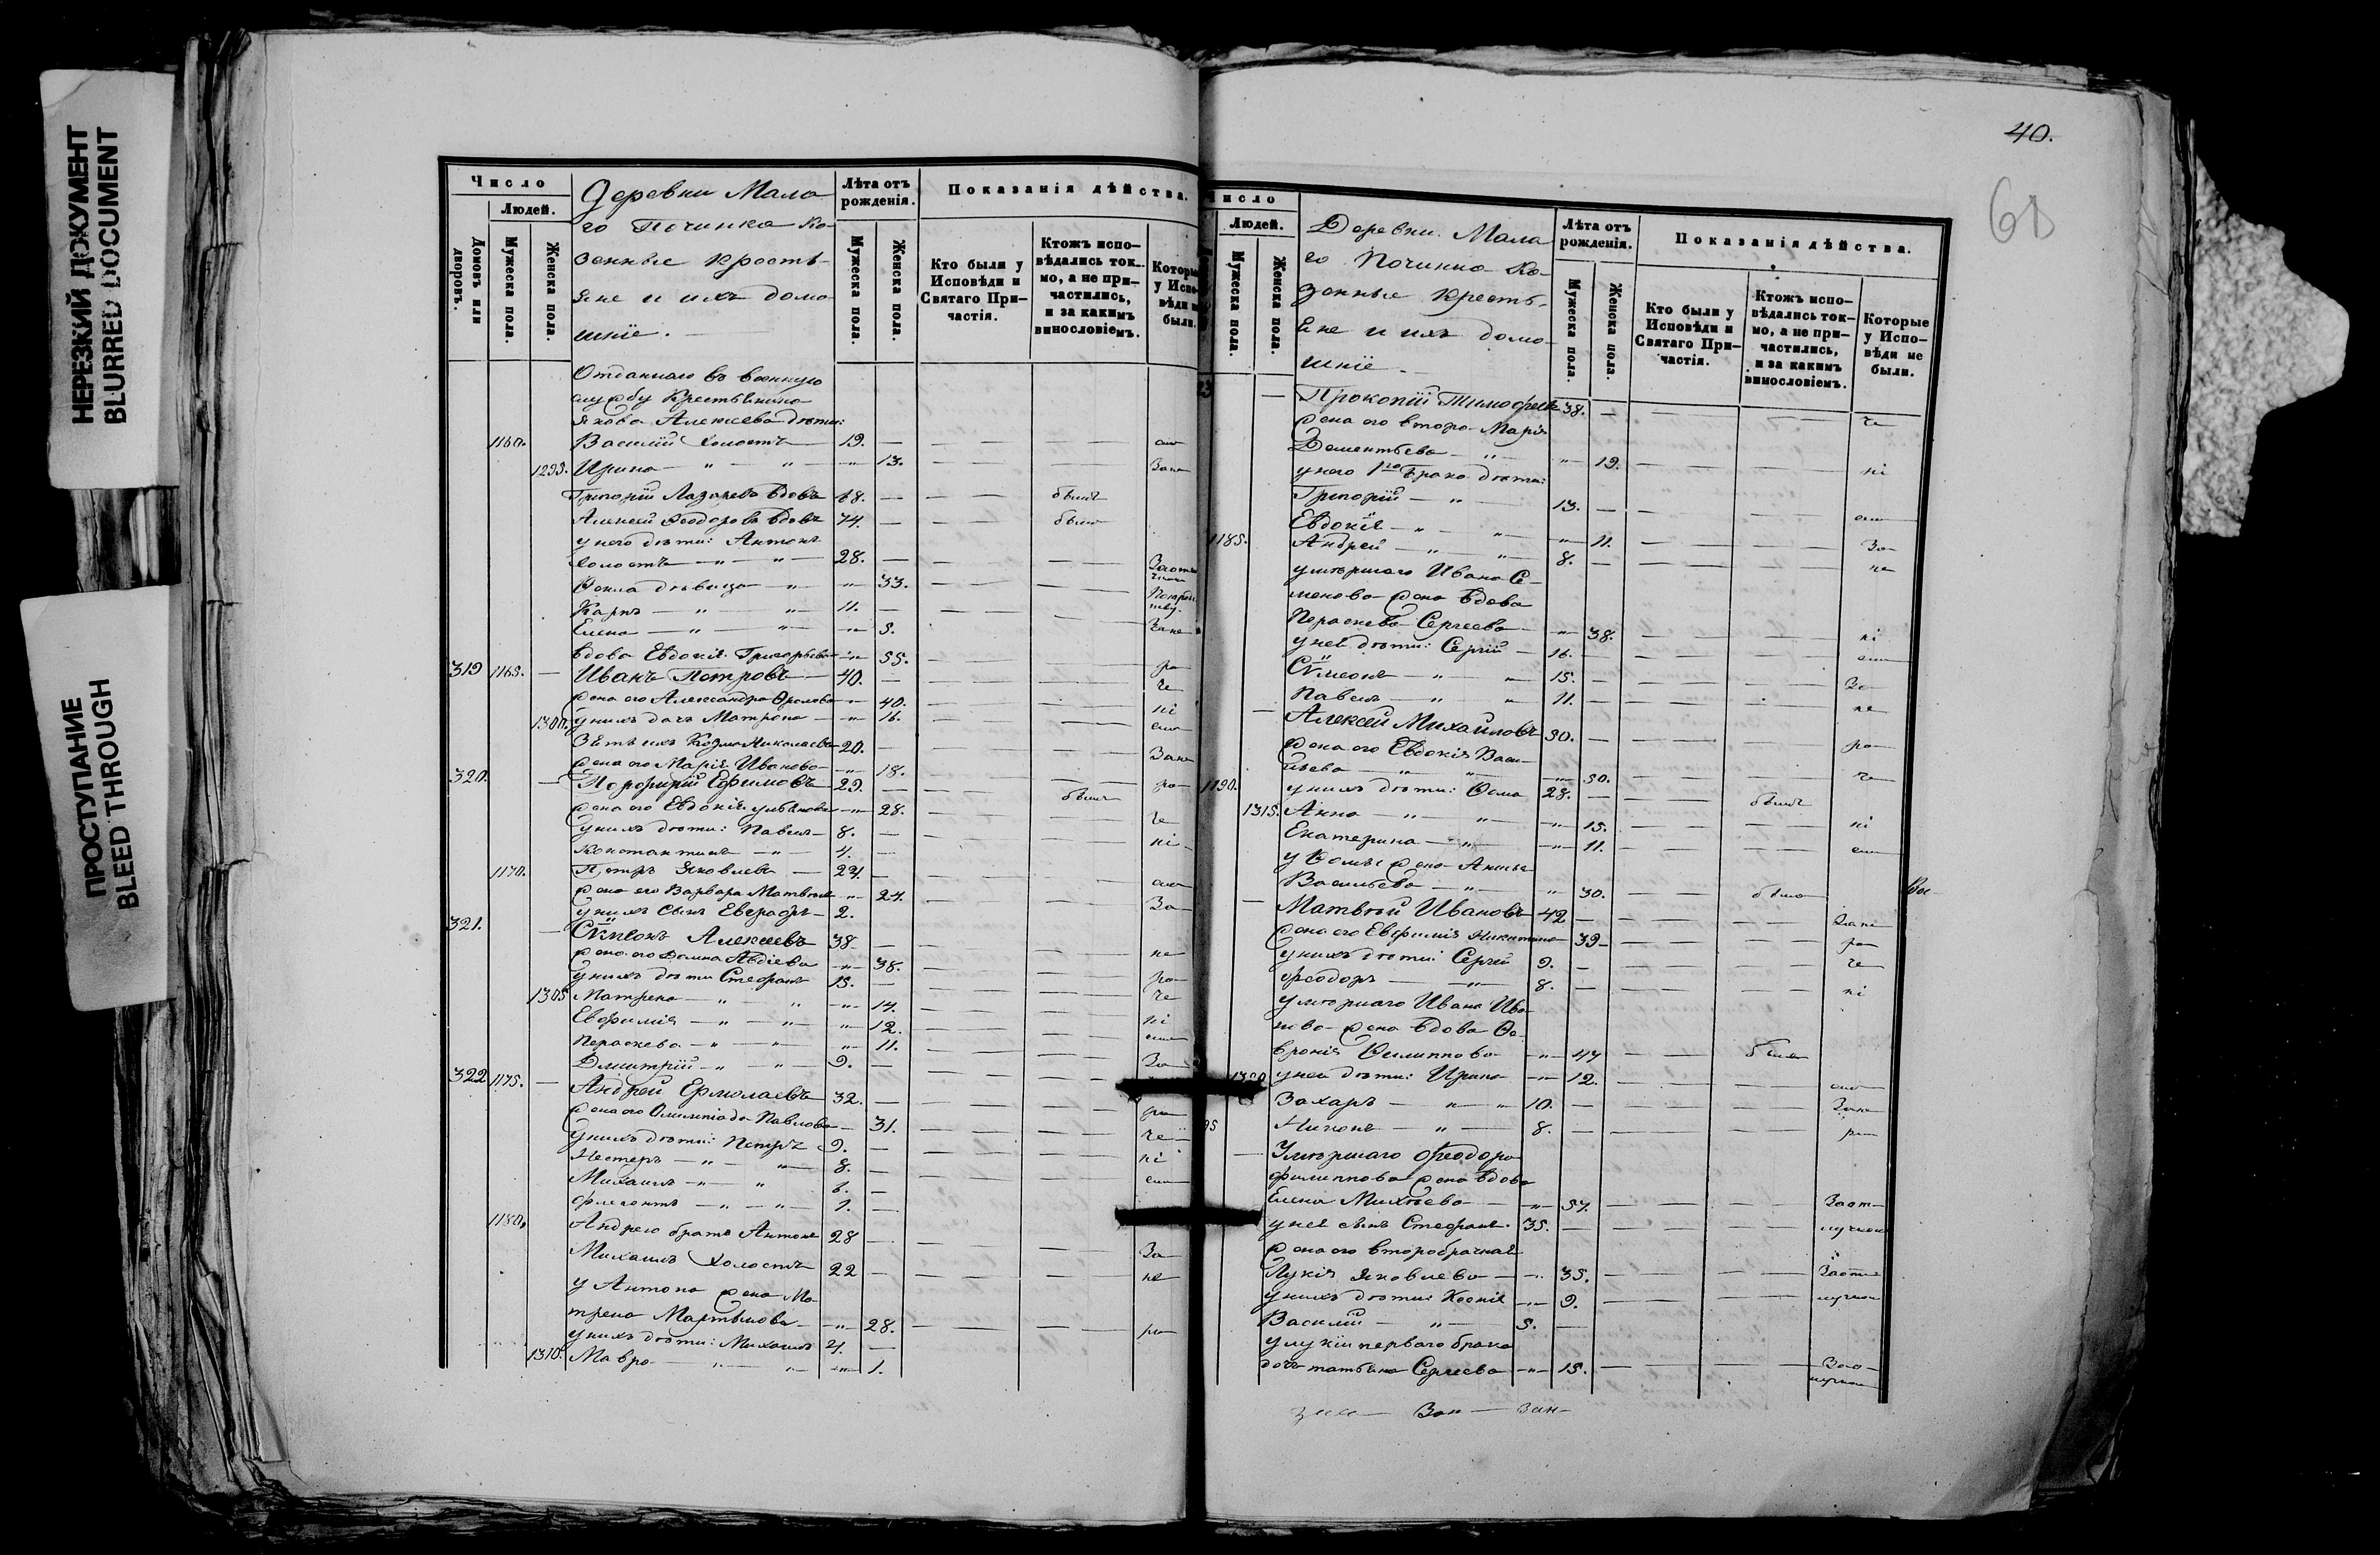 НЕРЕЗКИЙ ДОКУМЕНТ
BLURRED DOCUMENT
ПРОСТУПАНИЕ
BLEED THROUGH
Число
Людей.
Домовъ или дворовъ.
Мужеска пола.
Женска пола.
Деревни Мала
го Починка Ка-
зенные Кресть-
яне и ихъ дома-
шніе.
Лѣта отъ рожденія.
Мужеска пола.
Женска пола.
Показанія дѣйства.
Кто были у Исповѣди и Святаго Причастія.
Ктожъ исповѣдались токмо, а не причастились, и за какимъ винословіемъ.
Которые у Исповѣди не были.
Отданнаго въ военную
службу Крестьянина
Якова Алексѣева дѣти:
1160. Василій холостъ 19. — — —
1299. Ирина — " — " — " 13. — —
Григорій Лазаревъ вдовъ 68. — — былъ
Алексѣй Ѳеодоровъ вдовъ 74. — — былъ
у него дѣти: Антонъ
холостъ — " — " — 28. — — —
Ѳекла дѣвица — " — " 33. — —
Карпъ — " — " 11. — — —
Елена — " — " — " 9. — —
вдова Евдокія Григорьева — " 55. — —
319 1165. — Иванъ Петровъ — 40. — — — ра
жена его Александра Фролова — " 40. — — че
1300. у нихъ дочь Матрона — " 16. — — ні
Зять ихъ Козма Николаевъ 20. — — —
жена его Марія Иванова — " 18. — —
320. — Порфирій Ефимовъ 29. — — былъ
жена его Евдокія — " 28. — — че
у нихъ дѣти: Павелъ — 8. — — ні
Константинъ — " — 4. —
1170. Петръ Яковлевъ — 24. — — —
жена его Варвара Матвѣева — " 24. — — За
у нихъ сынъ Евграфъ — 2.
321. — Сѵмеонъ Алексѣевъ 38. — — — не
жена его Домна Авдіева — " 38. — — ра
у нихъ дѣти Стефанъ 15. — — — че
1305 Матрена — " — " — " 14. — — ні
Евфимія — " — " — " 12. — —
Параскева — " — " — " 11. — — За
Дмитрій — " — " 9. — — —
322 1175. — Андрей Ермолаевъ 32. — — — ра
жена его Олимпіада Павлова — 31. — — че
у нихъ дѣти: Петръ 9. — — — ні
Несторъ — " — " — 8. — — —
Михаилъ — " — " 6. —
Флегонтъ — " — " — 1. —
1180. Андрею братъ Антонъ 28 — — — За
Михаилъ холостъ 22 — — — не
у Антона жена Ма
трена Мартынова — " 28. — — ра
у нихъ дѣти: Михаилъ 4. —
1310. Мавра — " — " — " 1.
40.
Число
Людей.
Мужеска пола.
Женска пола.
Деревни Мала
го Починка Ка-
зенные Кресть-
яне и ихъ дома-
шніе.
Лѣта отъ рожденія.
Мужеска пола.
Женска пола.
Показанія дѣйства.
Кто были у Исповѣди и Святаго Причастія.
Ктожъ исповѣдались токмо, а не причастились, и за какимъ винословіемъ.
Которые у Исповѣди не были.
— Прокопій Тимофеевъ 38. — — — че
жена его втора Марія
Дементьева — " — " 19. — — ні
у него 1го брака дѣти:
Григорій — " — 13. — — —
Евдокія — " — " — " 11. — — За
1185. Андрей — " — " 8. — — — не
умершаго Ивана Се-
менова жена вдова
Параскева Сергеева — " 38. — — ні
у ней дѣти: Сергій — 16. — — —
Сѵмеонъ — " — " 15. — — — За
Павелъ — " — " 11. — — — не
— Алексѣй Михайловъ 50. — — — ра
жена его Евдокія Васи-
льева — " — " — " 50. — — че
1190. у нихъ дѣти: Ѳома 28. — — былъ
1315. Анна — " — " — " 15. — — ні
Екатерина — " — " 11. — —
у Ѳомы жена
Васильева — " — " 30. — — была
— Матвѣй Ивановъ 42 — — —
жена его Евфимія Никитина 39 — — ра
у нихъ дѣти: Сергій 9. — — — че
Ѳеодоръ — " — 8. — — — ні
умершаго Ивана Ива
нова жена вдова Ѳе
вронія Филиппова — " 47 — — была
1320 у ней дѣти: Ирина — " 12. — —
Захаръ — " — " 10. — — —
95 Никонъ — " — 8. — — — ра
— Умершаго Ѳеодора
Филиппова жена вдова
Елена Михѣева — " 57. — — За от
у ней сынъ Стефанъ 35. — — — лучкою
жена его второбрачная
Лукія Яковлева — " 35. — —
у нихъ дѣти: Ксенія — " 9. — —
Василій — " — 5. —
у Лукіи перваго брака
дочь Татьяна Сергеева — " 15. — —